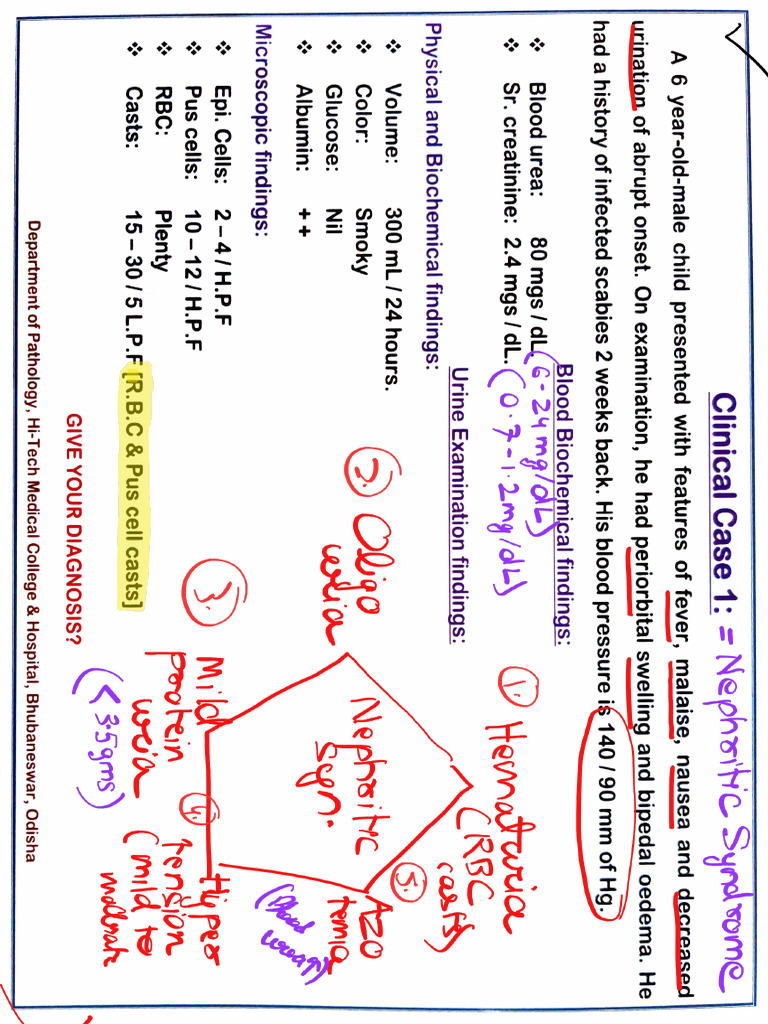 Clinical Case 1: = Nephritic Syndrome
A 6 year-old-male child presented with features of fever, malaise, nausea and decreased
urination of abrupt onset. On examination, he had periorbital swelling and bipedal oedema. He
had a history of infected scabies 2 weeks back. His blood pressure is 140 / 90 mm of Hg.
Blood Biochemical findings:
❖ Blood urea: 80 mgs / dL. (6-24 mg/dL)
❖ Sr. creatinine: 2.4 mgs / dL. (0.7-1.2mg/dL)
Urine Examination findings:
Physical and Biochemical findings:
❖ Volume: 300 mL / 24 hours.
❖ Color: Smoky
❖ Glucose: Nil
❖ Albumin: ++
Microscopic findings:
❖ Epi. Cells: 2 – 4 / H.P.F
❖ Pus cells: 10 – 12 / H.P.F
❖ RBC: Plenty
❖ Casts: 15 – 30 / 5 L.P.F [R.B.C & Pus cell casts]
1. Hematuria
(RBC
casts)
2. Oligo
uria
Nephritic
Syn.
3. Mild
protein
uria
(< 3.5gms)
4. Hyper
tension
(mild to
5. Azo
temia
GIVE YOUR DIAGNOSIS?
Department of Pathology, Hi-Tech Medical College & Hospital, Bhubaneswar, Odisha